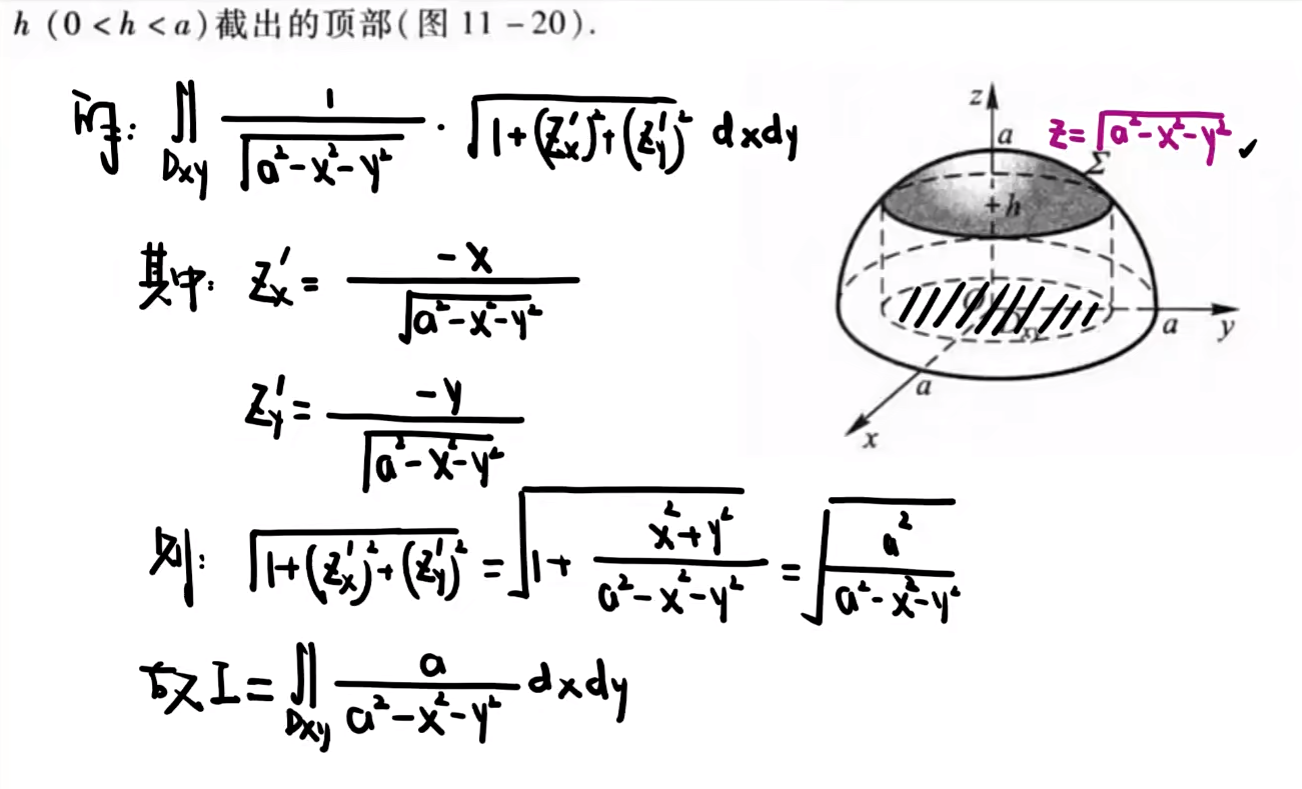 h (0 < h < a)截出的顶部(图 11 - 20).
∬_{Dxy} 1/√(a²-x²-y²) · √(1+(Z'x)²+(Z'y)²) dxdy
其中: Z'x = -x/√(a²-x²-y²)
Z'y = -y/√(a²-x²-y²)
则: √(1+(Z'x)²+(Z'y)²) = √(1+(x²+y²)/(a²-x²-y²)) = √(a²/(a²-x²-y²))
故 I = ∬_{Dxy} a/(a²-x²-y²) dxdy
z
a
z=√(a²-x²-y²) ✓
Σ
h
O
Dxy
a
y
a
x